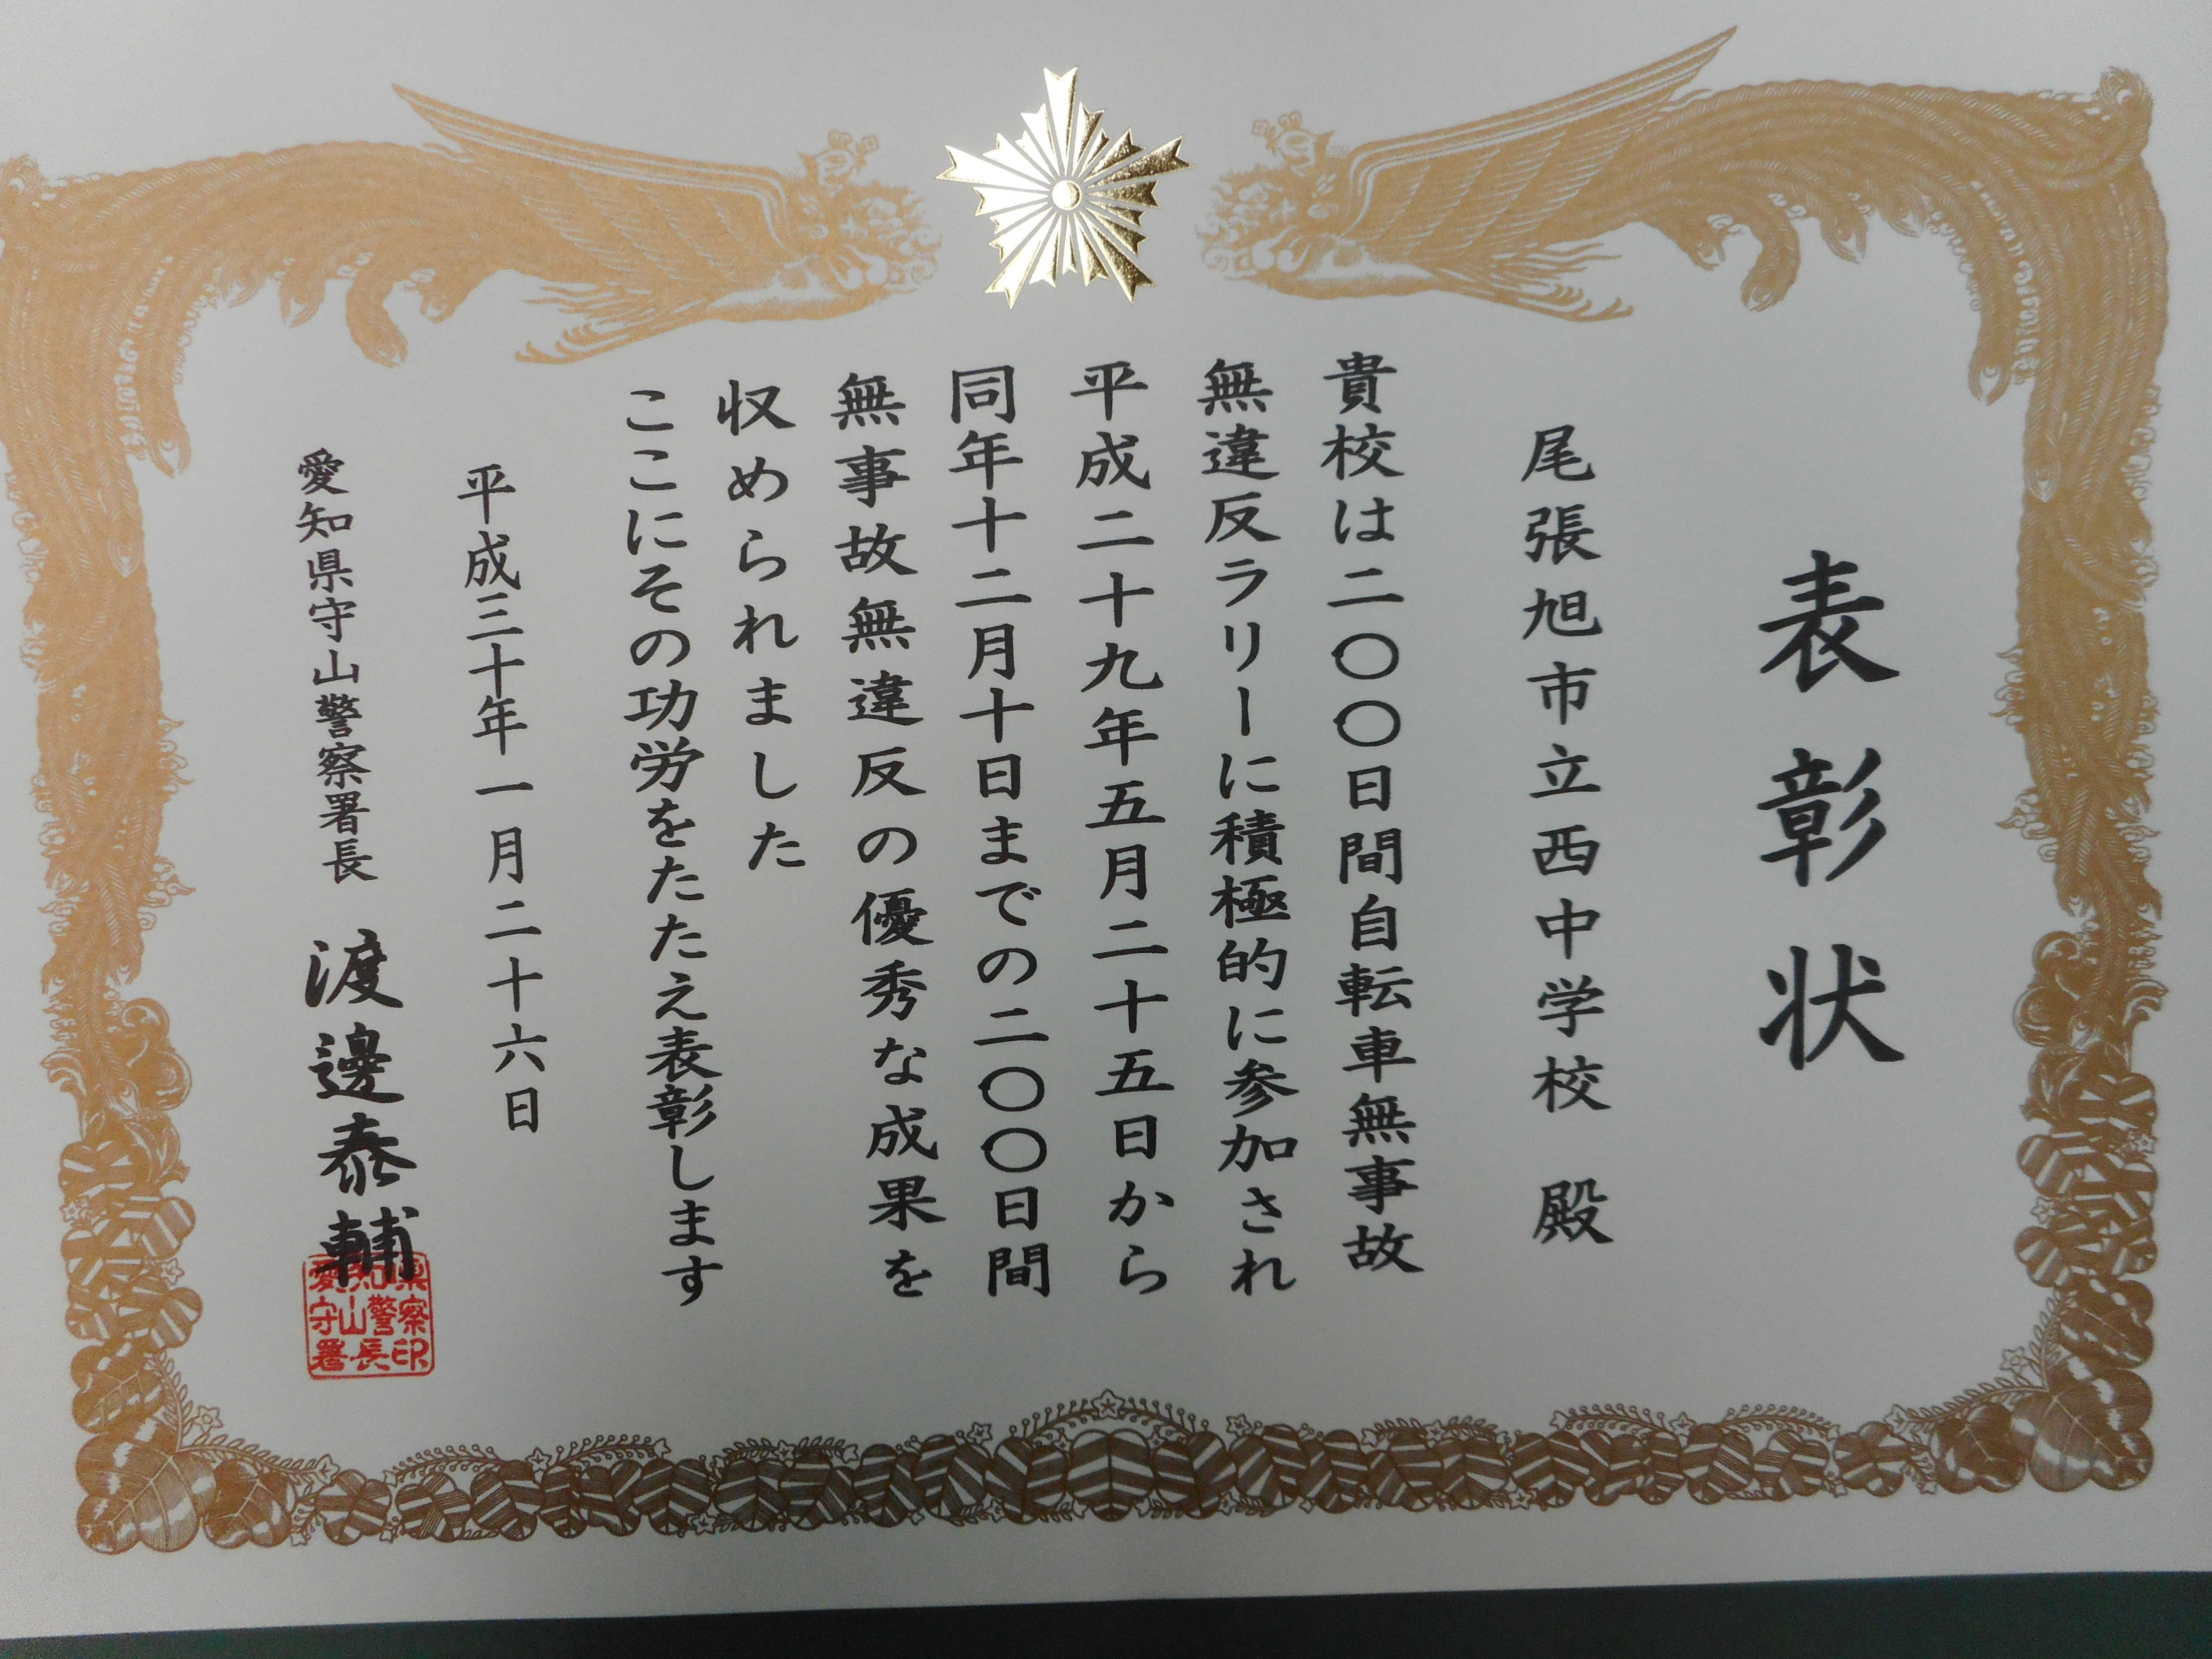 表彰状
尾張旭市立西中学校 殿
貴校は二〇〇日間自転車無事故
無違反ラリーに積極的に参加され
平成二十九年五月二十五日から
同年十二月十日までの二〇〇日間
無事故無違反の優秀な成果を
収められました
ここにその功労をたたえ表彰します
平成三十年一月二十六日
愛知県守山警察署長 渡邊泰輔
愛知県
守山警察
署長印